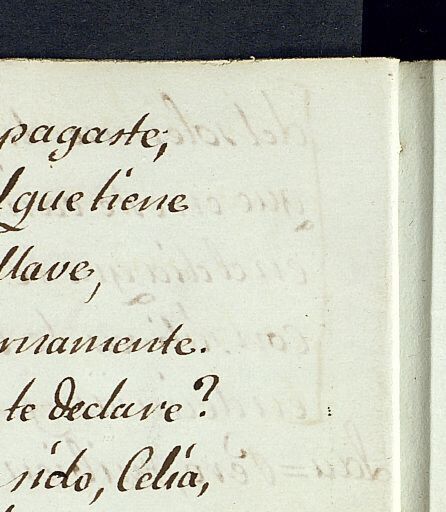 pagaste;
que tiene
llave,
rnamente.
te declare?
sido, Celia,